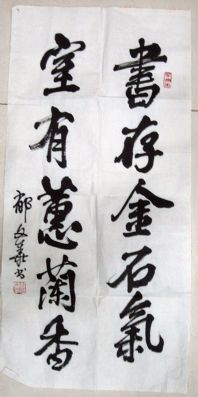 書存金石氣
室有蕙蘭香
郁文華书